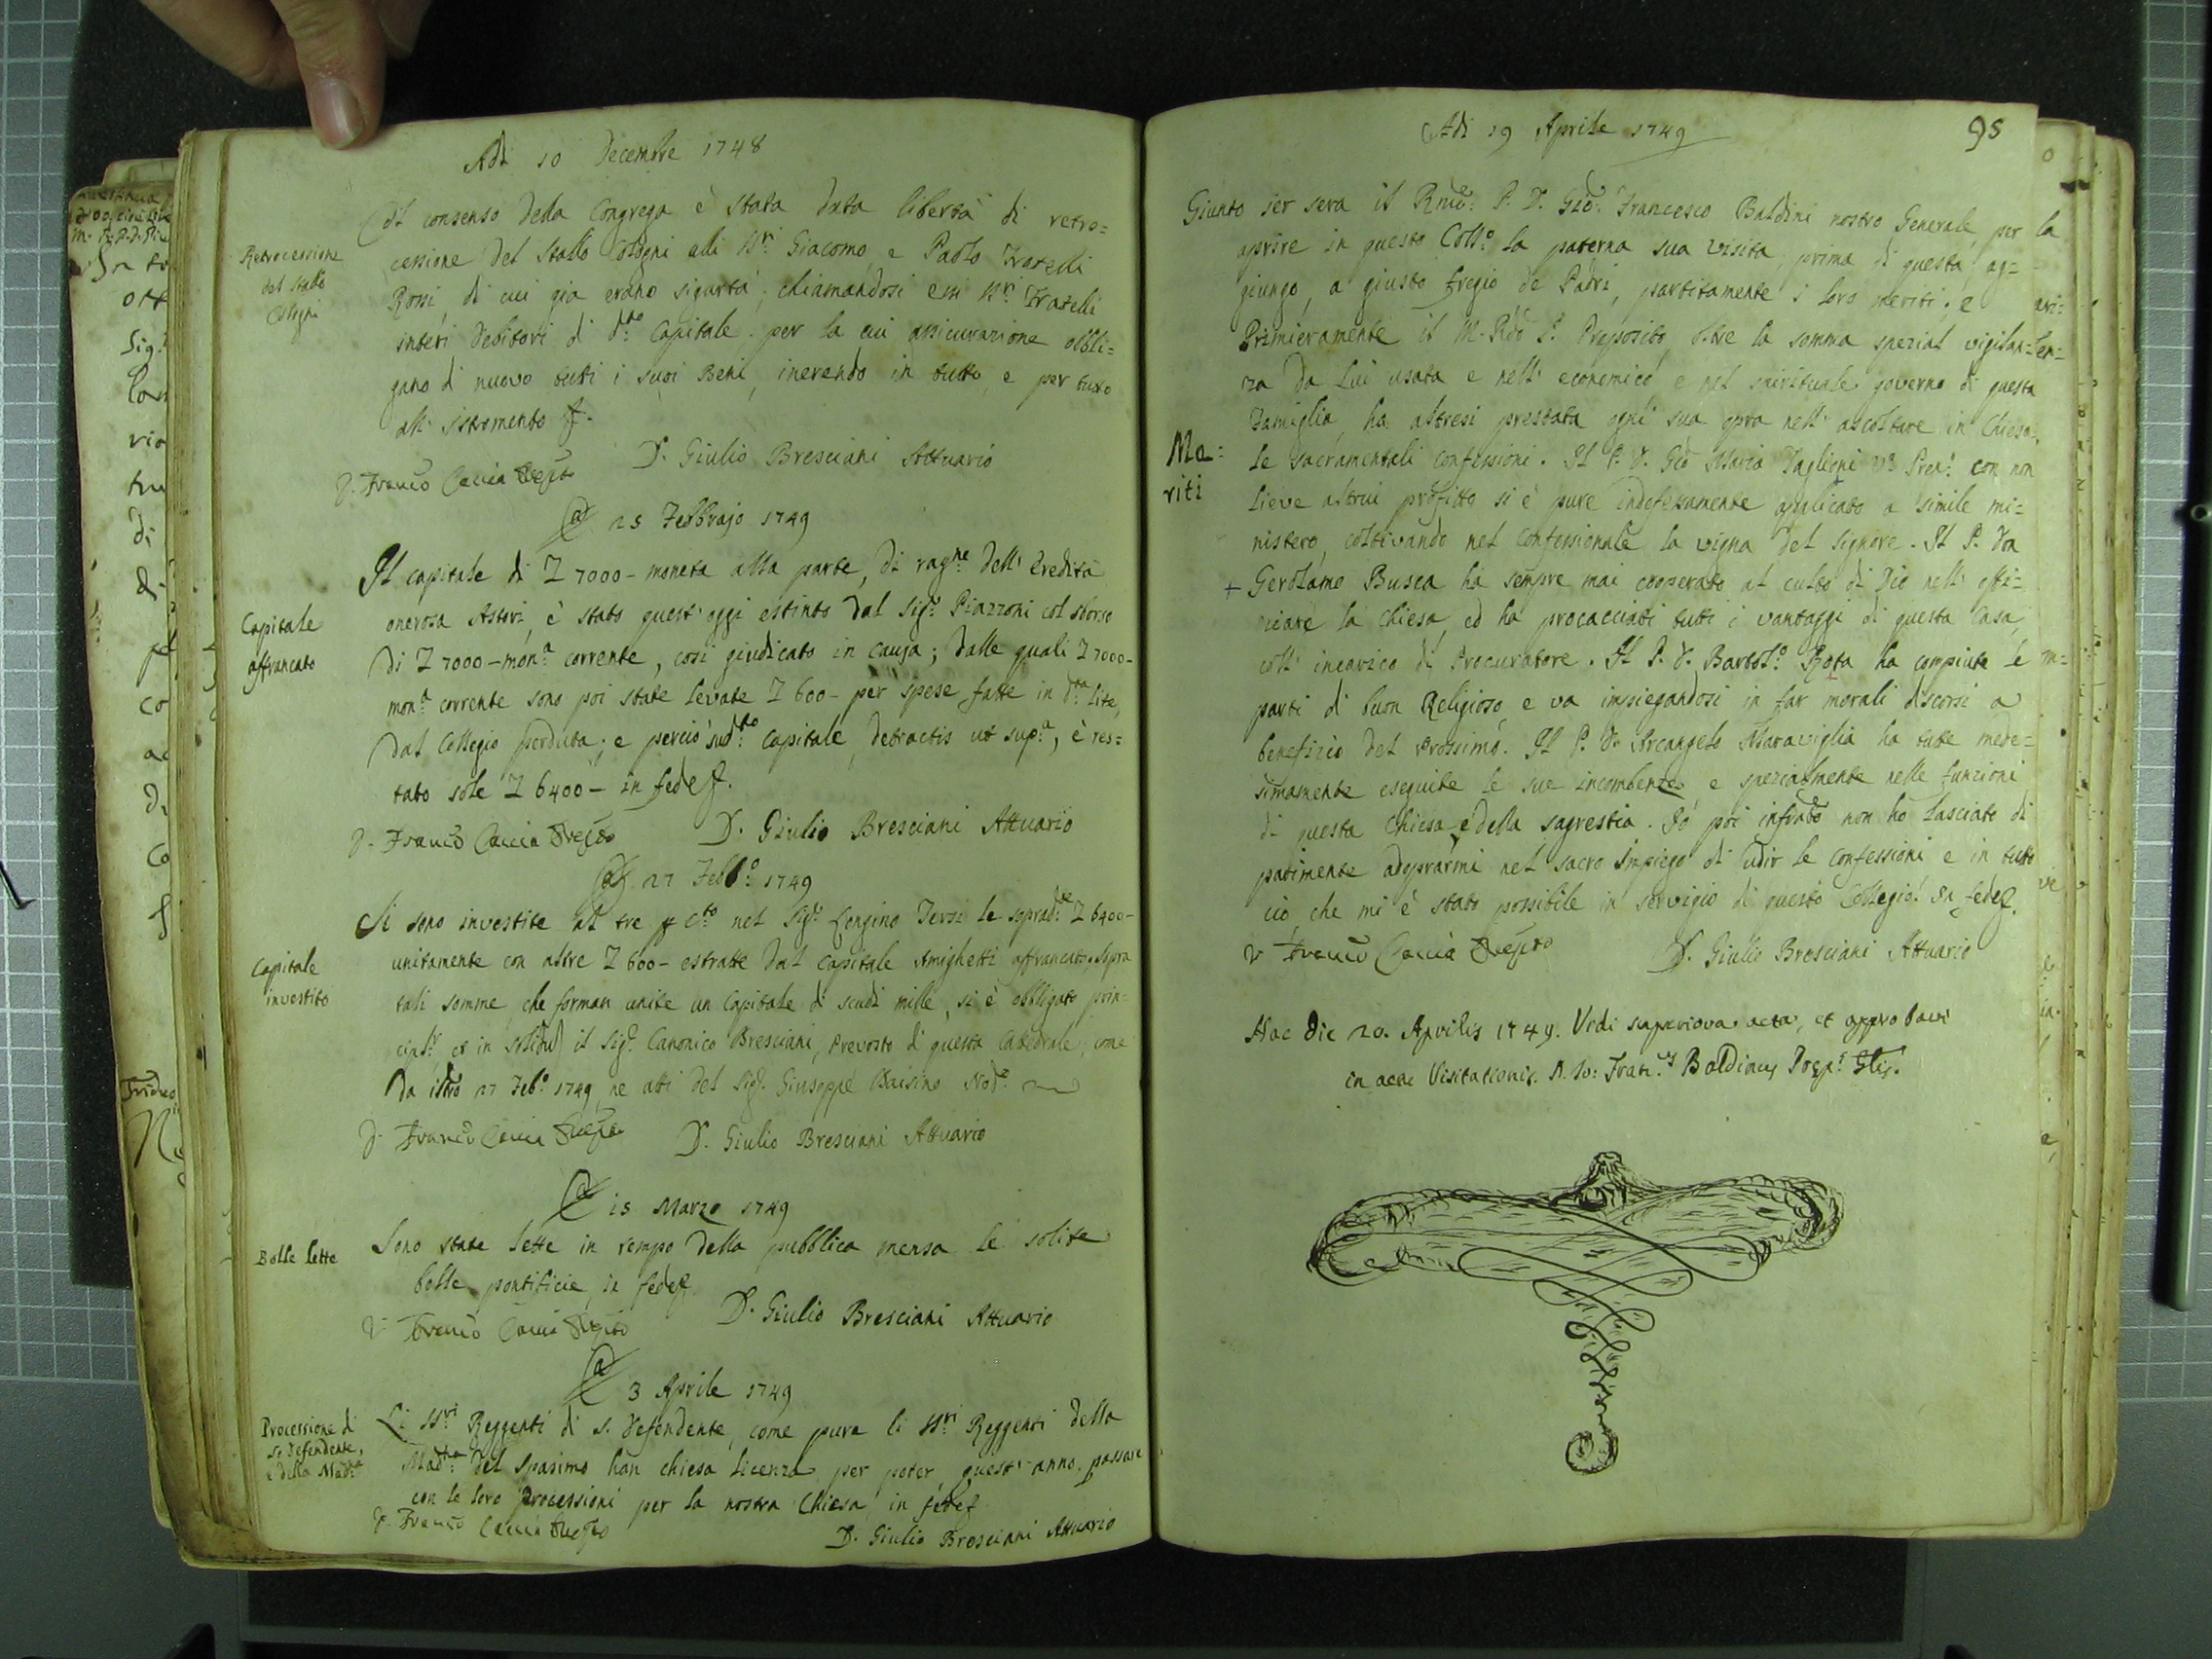 Adi 10 Decembre 1748
Col consenso della Congrega è stata data libertà di retro=
Retrocessione
del Stallo
Cologni
cessione del Stallo Cologni alli SS.ri Giacomo, e Paolo Fratelli
Rossi, di cui gia erano sigurtà; chiamandosi essi SS.ri Fratelli
interi debitori di d.to Capitale. per la cui assicurazione obbli=
gano di nuovo tutti i suoi Beni, inerendo in tutto, e per tutto
all' istromento
D. Giulio Bresciani Attuario
D. Franco Caccia Prepto
Adi 25 Febbrajo 1749
Il capitale di L 7000 - moneta alla parte, di rag.ne dell' Eredità
Capitale
affrancato
onerosa Astori, è stato quest' oggi estinto dal Sig.r Piazzoni col sborso
di L 7000 - mon.a corrente, cosi giudicato in causa; dalle quali L 7000 -
mon.a corrente sono poi state levate L 600 - per spese fatte in d.ta lite,
dal Collegio perduta; e perciò sud.to capitale, detractis ut sup.a, è res=
tato sole L 6400 - in fede
D. Franco Caccia Prepto
D. Giulio Bresciani Attuario
Adi 27 Febb.o 1749
Si sono investite al tre p c.to nel Sig.r Longino Terzi le soprad.te L 6400 -
Capitale
investito
unitamente con altre L 600 - estratte dal capitale Amighetti affrancato. Sopra
tali somme, che forman unite un Capitale di scudi mille, si è obbligato prin=
cipal.r et in solidu il Sig.r Canonico Bresciani, Prevosto di questa Catedrale, come
da istro 27 Feb.o 1749 ne atti del Sig.r Giuseppe Baisino Nod.o
D. Franco Caccia Prepto
D. Giulio Bresciani Attuario
Adi 15 Marzo 1749
Bolle lette
Sono state lette in tempo della pubblica mensa le solite
bolle pontificie, in fede
D. Franco Caccia Prepto
D. Giulio Bresciani Attuario
Adi 3 Aprile 1749
Processione di
S. Defendente,
e della Mad.na
Li SS.ri Reggenti di S. Defendente, come pure li SS.ri Reggenti della
Mad.na del Spasimo han chiesa licenza per poter, quest' anno, passare
con le loro Processioni per la nostra Chiesa, in fede
D. Franco Caccia Prepto
D. Giulio Bresciani Attuario
Adi 19 Aprile 1749
95
Giunto jer sera il Rmo: P. D. Gio: Francesco Baldini nostro Generale, per
aprire in questo Coll.o la paterna sua visita, prima di questa, ag=
giungo, a giusto fregio de Padri, partitamente i loro meriti. e
Primieramente il M. Rdo P. Preposito, oltre la somma spezial vigilan=
za da Lui usata e nell' economico, e nel spirituale governo di questa
Famiglia, ha altresi prestata ogni sua opra nell' ascoltare in Chiesa
Me=
riti
le sacramentali confessioni. Il P. D. Gio Maria Taglioni V.e Prep.o con non
lieve altrui profitto si è pure indefessamente applicato a simile mi=
nistero, coltivando nel Confessionale la vigna del Signore. Il P. Don
+ Gerolamo Busca ha sempre mai cooperato al culto di Dio nell' offi=
ciare la Chiesa, ed ha procacciati tutti i vantaggi di questa Casa,
coll' incarico di Procuratore. Il P. D. Bartol.o Rota ha compiute le
parti di buon Religioso, e va impiegandosi in far morali discorsi a
benefizio del Prossimo. Il P. D. Arcangelo Maraviglia ha tutte mede=
simamente eseguite le sue incombenze, e spezialmente nelle funzioni
di questa Chiesa e della sagrestia. Io poi infratto non ho lasciato di
patimente adoprarmi nel sacro impiego di udir le confessioni e in tutto
ciò, che mi è stato possibile in servigio di questo Collegio. In fede
D. Franco Caccia Prepto
D. Giulio Bresciani Attuario
Hac die 20. Aprilis 1749. Vidi superiora acta, et approbavi
in actu Visitationis. D. Jo: Fran.us Baldinus Prep.s Glis.